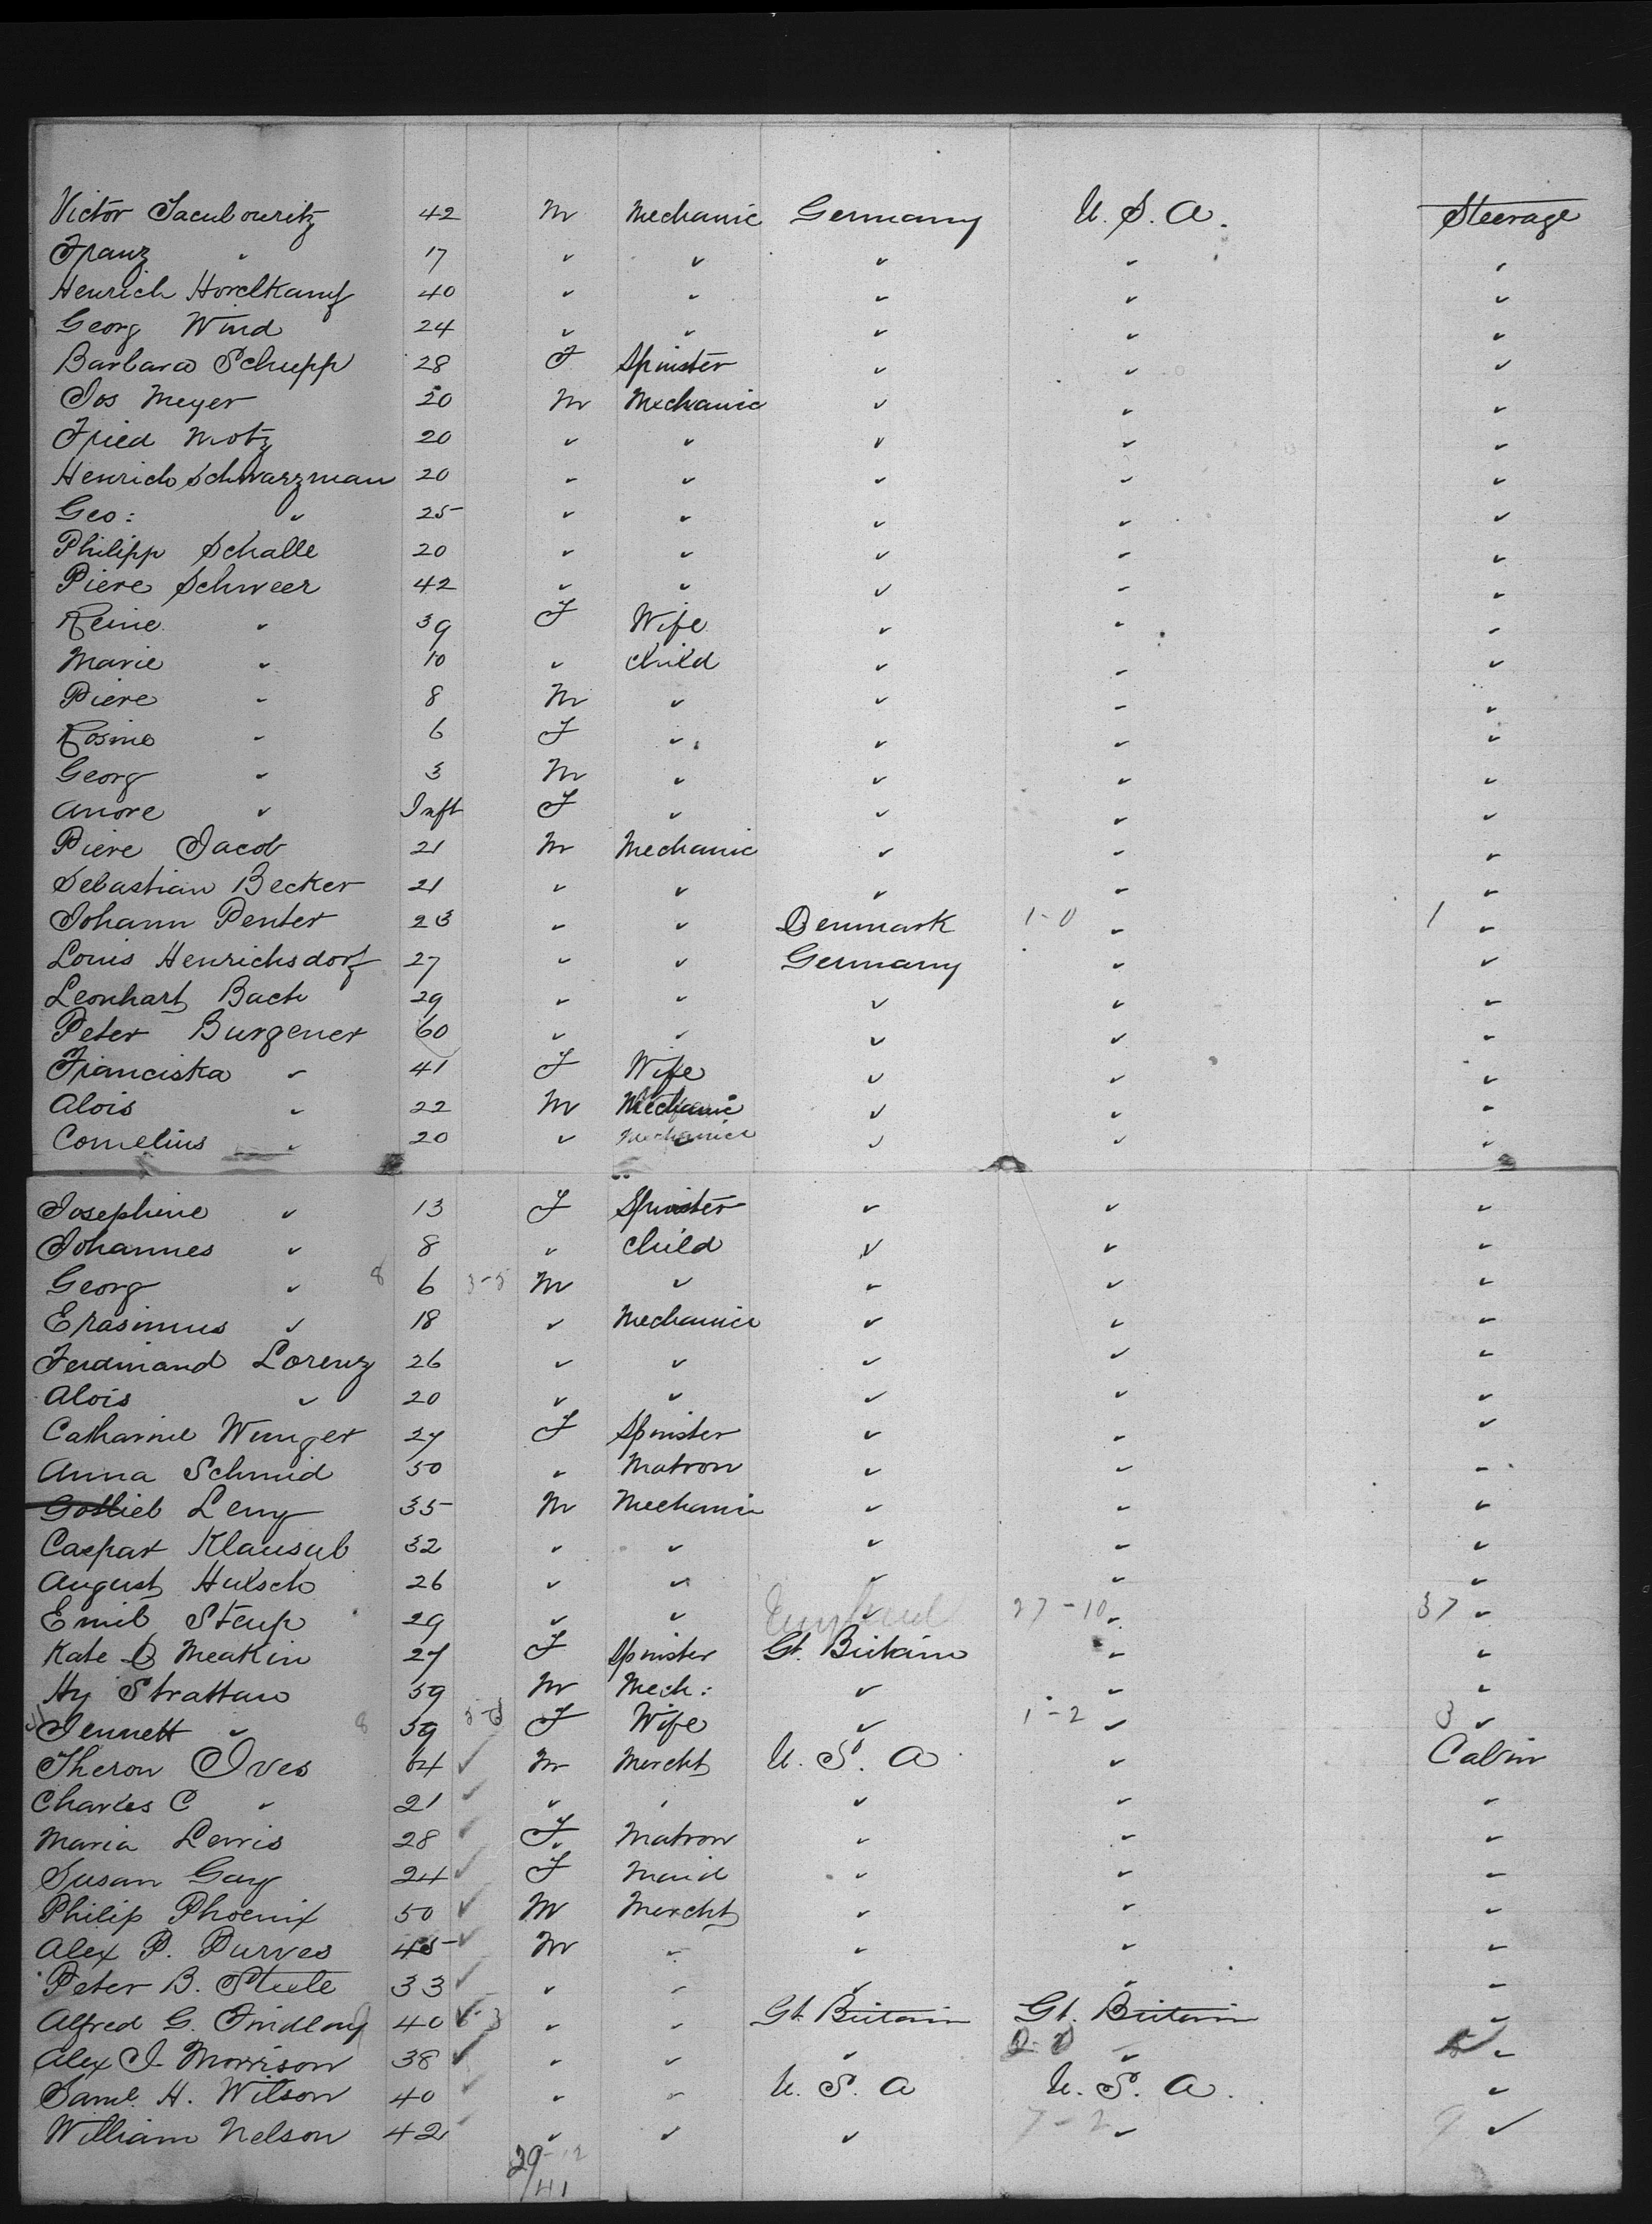 Victor Jacubowitz 42 M Mechanic Germany U. S. A. Steerage
Franz " 17 " " " " "
Henrich Hordtkamp 40 " " " " "
Georg Wind 24 " " " " "
Barbara Schupp 28 F Spinster " " "
Jos Meyer 20 M Mechanic " " "
Fried Motz 20 " " " " "
Henrich Schwarzman 20 " " " " "
Geo: " 25 " " " " "
Philipp Schalle 20 " " " " "
Piere Schweer 42 " " " " "
Reine " 39 F Wife " " "
Marie " 10 " Child " " "
Piere " 8 M " " " "
Rosine " 6 F " " " "
Georg " 3 M " " " "
Anore " Inft F " " " "
Piere Jacob 21 M Mechanic " " "
Sebastian Becker 21 " " " " "
Johann Penter 23 " " Denmark 1-0 " 1 "
Louis Henrichsdorf 27 " " Germany " "
Leonhart Bach 29 " " " " "
Peter Burgener 60 " " " " "
Franciska " 41 F Wife " " "
Alois " 22 M Mechanic " " "
Cornelius " 20 " Mechanic " " "
Josephine " 13 F Spinster " " "
Johannes " 8 " Child " " "
Georg " 8 6 3-5 M " " " "
Erasimus " 18 " Mechanic " " "
Ferdinand Lorenz 26 " " " " "
Alois " 20 " " " " "
Catharine Wenger 27 F Spinster " " "
Anna Schmid 50 " Matron " " "
Gottlieb Leng 35 M Mechanic " " "
Caspar Klausul 32 " " " " "
August Hulsch 26 " " " " "
Emil Steup 29 " " " 27-10 " 37 "
Kate Meakin 27 F Spinster Gt. Britain " "
Hy Strattan 59 M Mech: " " "
Jennett " 8 59 F Wife " 1-2 " 3 "
Theron Ives 64 M Mercht U. S. A " Cabin
Charles C " 21 " " " " "
Maria Lewis 28 F " Matron " " "
Susan Gay 24 F Maid " " "
Philip Phoenix 50 M Mercht " " "
Alex P. Purves 45 M " " " "
Peter B. Steele 33 " " " " "
Alfred G. Findlay 40 " " Gt. Britain Gt. Britain "
Alex J. Morrison 38 " " " " "
Saml. H. Wilson 40 " " U. S. A U. S. A. "
William Nelson 42 " " " 7-2 " 9 "
29-12
/41